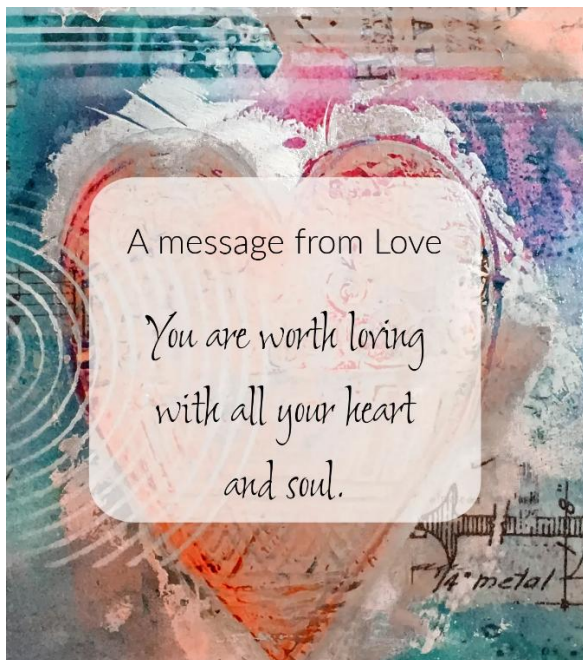 A message from Love
You are worth loving
with all your heart
and soul.
1/4" metal